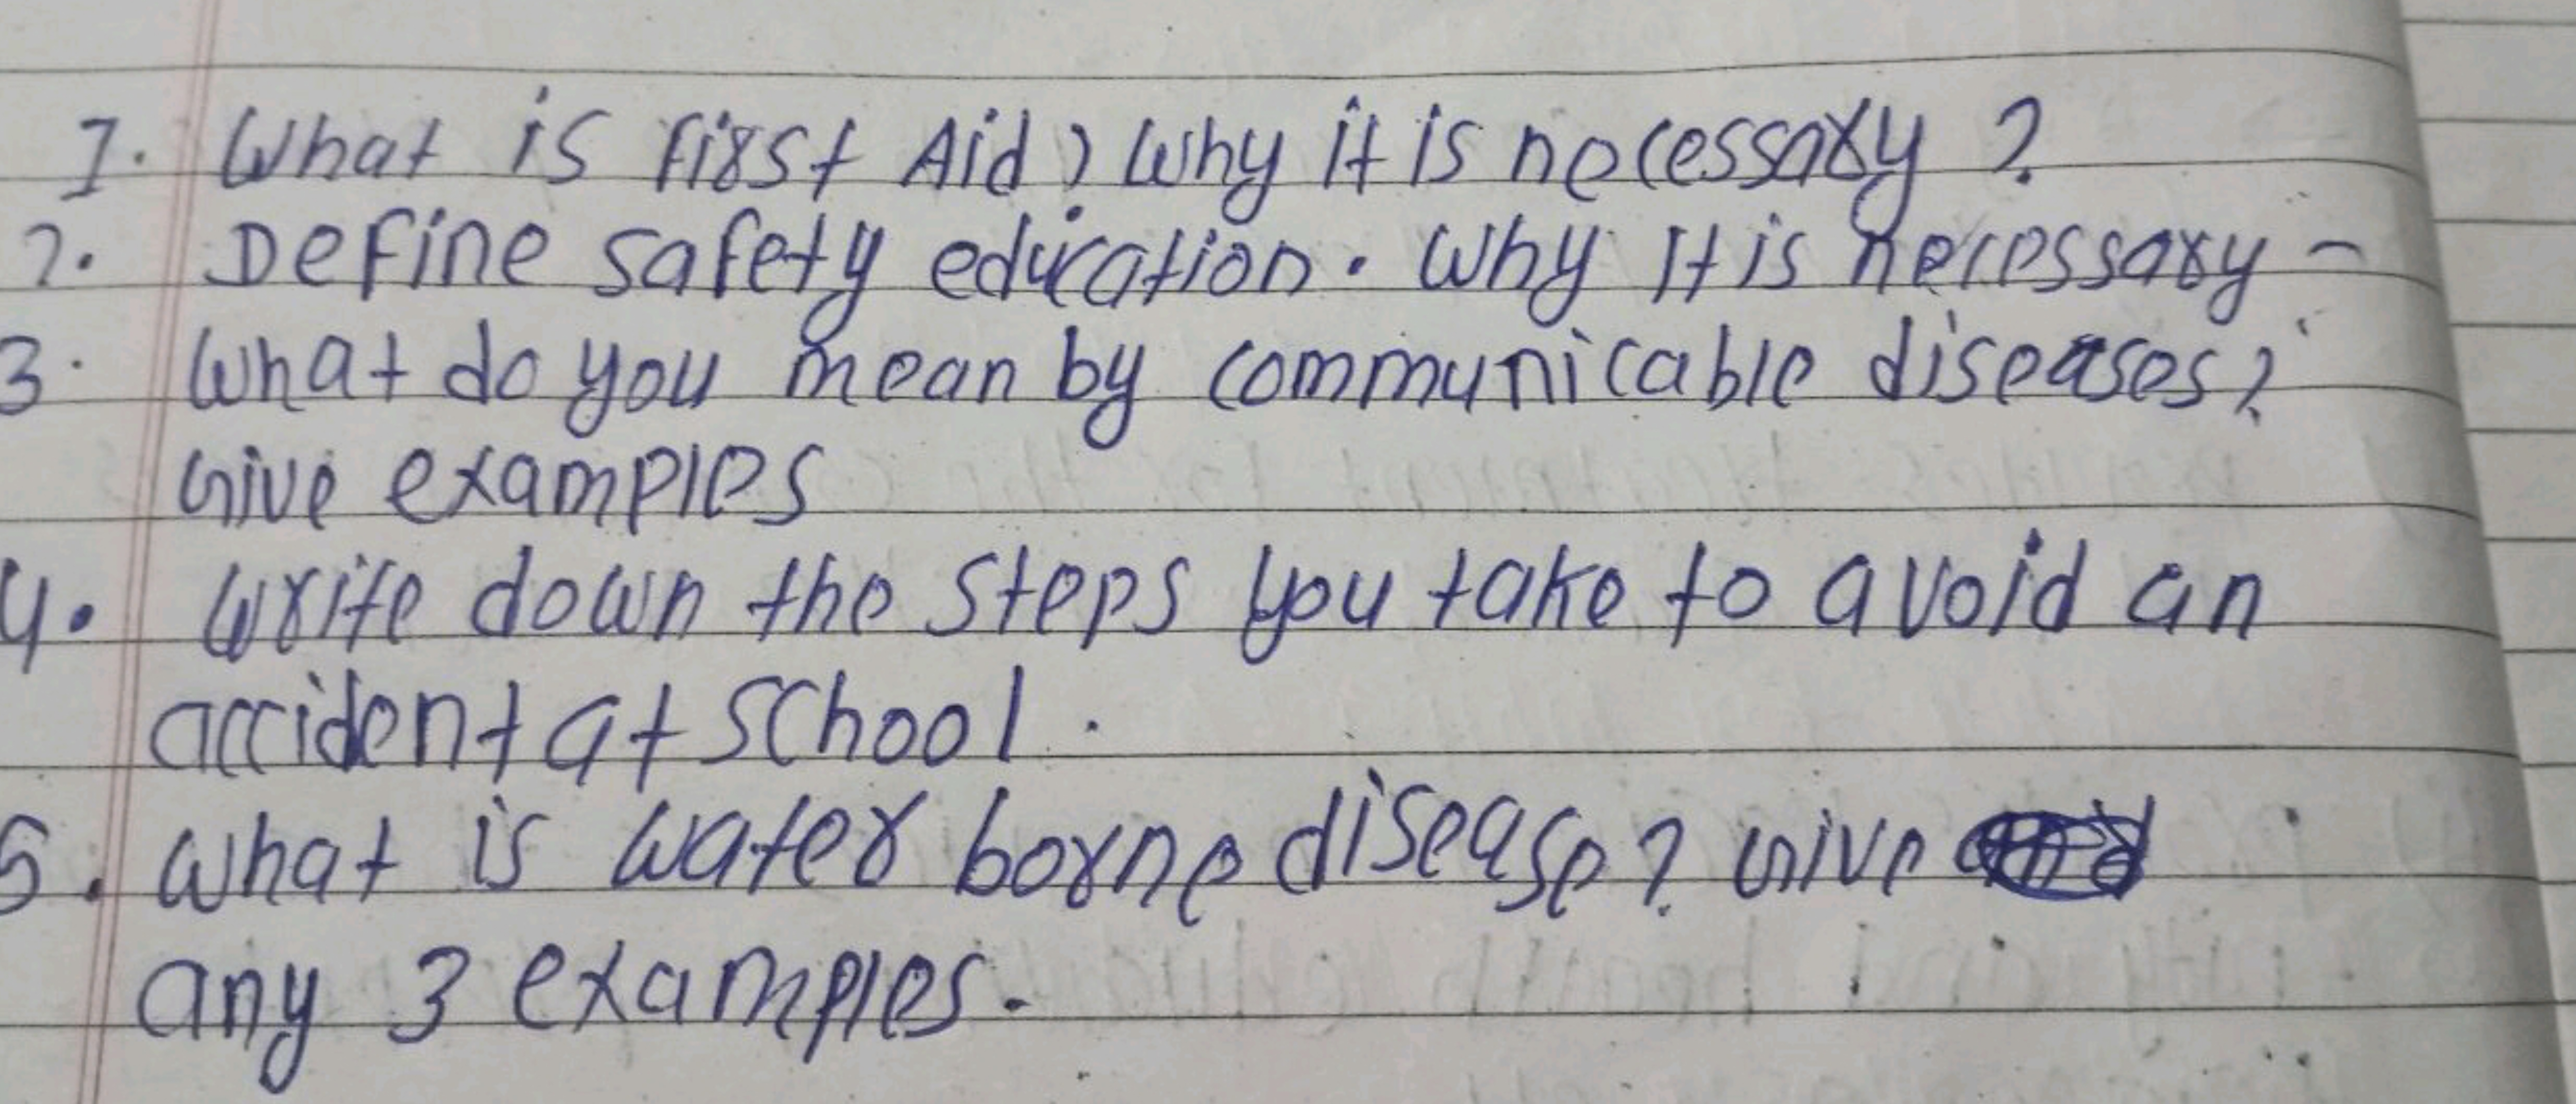 1. What is First Aid? Why it is necessary?
2. Define safety education. Why It is necessary-
3. What do you mean by communicable diseases?
Give examples
4. Write down the steps you take to avoid an
accident at school.
5. What is water borne disease? Give
any 3 examples.